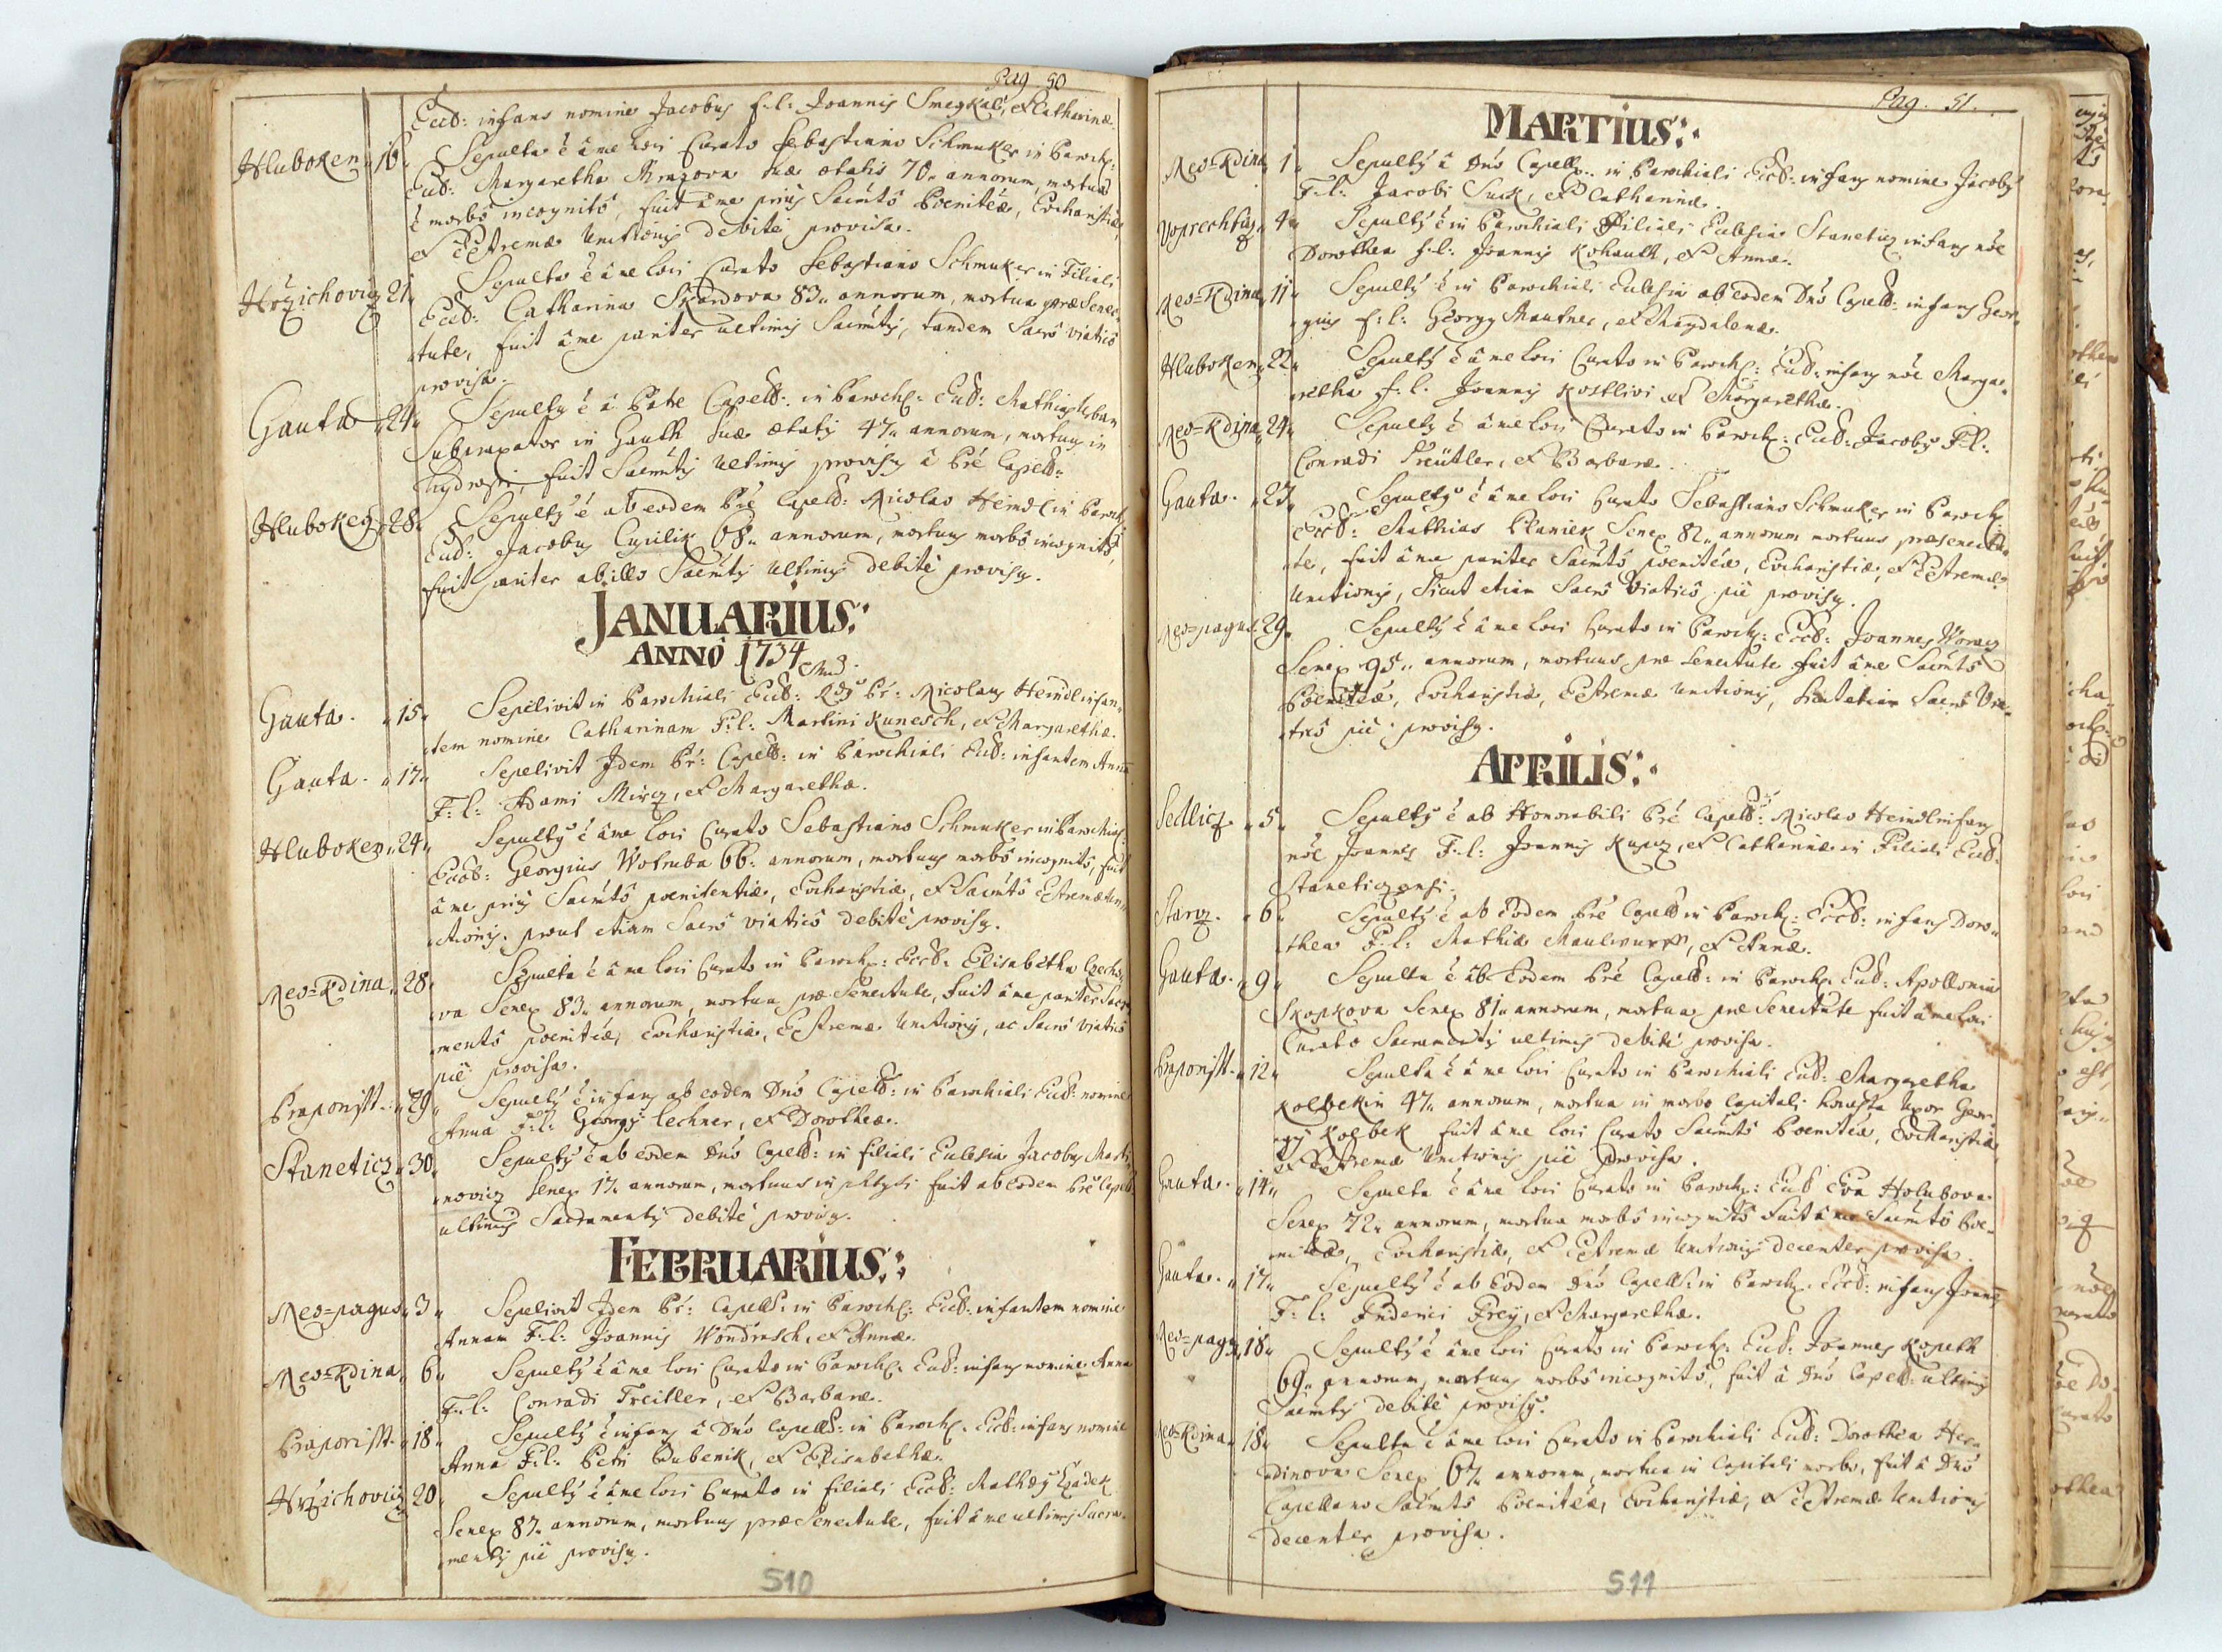 Pag 50
Eccl: infans nomine Jacobus f: l: Joannis Smegkal, et Catharinæ.
Hluboken 16 Sepulta ê à me loci Curato Sebastiano Schmuker in Paroch:
Eccl: Margaretha suæ ætatis 70 annorum, mortua
ê morbô incognitô, fuit à me priùs Sacmtô Poenitæ, Eucharistiæ,
et Extremæ Unctionis debitè provisa.
Hržichovicz 21 Sepulta ê à me loci Curato Sebastiano Schmuker in Filiali
Eccl: Catharina Skardova 83 annorum, mortua præ Senec-
tute, fuit à me pariter ultimis Sacmtis, tandem Sacrô viaticô
provisa.
Gauta 24 Sepultus ê à Patre Capell: in Paroch: Eccl: Mathias Urban
in Gauth suæ ætatis 47 annorum, mortuus in
hydropsi, fuit Sacmtis Ultimis provisus à Pre Capell:
Hluboken 28 Sepultus ê ab eodem Pre Capell: Nicolao Heindl in Paroch:
Eccl: Jacobus Cyrilix 68 annorum, mortuus morbô incognitô,
fuit pariter ab illo Sacmtis Ultimis debitè provisus.
JANUARIUS:
ANNO 1734
Gauta. 15 Sepelivit in Parochiali Eccl: Rds Pr: Nicolaus Heindl infan-
tem nomine Catharinam F: l: Martini Kunesch, et Margarethæ.
Gauta. 17 Sepelivit Idem Pr: Capell: in Parochiali Eccl: infantem Annam
F: l: Adami Mircz, et Margarethæ.
Hluboken 24 Sepultus ê à me loci Curato Sebastiano Schmuker in Parochial:
Eccl: Georgius Wotruba 66 annorum, mortuus morbô incognitô, fuit
à me priùs Sacmtô poenitentiæ, Eucharistiæ, et Sacmtô Extremæ Un-
ctionis, prout etiam Sacrô viaticô debitè provisus.
Neo=Kdina 28 Sepulta ê à me loci Curato in Paroch: Eccl: Elisabetha Czecho-
va Senex 83 annorum, mortua præ Senectute, fuit à me pariter Sacra-
mentô poenitæ, Eucharistiæ, Extremæ Unctionis, ac Sacrô Viaticô
piè provisa.
Praporist. 29 Sepultus ê infans ab eodem Dno Capell: in Parochiali Eccl: nomine
Anna F: l: Georgy Lechner, et Dorotheæ.
Staneticz 30 Sepultus ê ab eodem Dno Capell: in filiali Ecclesia Jacobus Marti-
novicz Senex 17 annorum, mortuus in phtysi fuit ab eodem Pre Capell
ultimis Sacramentis debitè provisus.
FEBRUARIUS:
Neo=pagus 3 Sepelivit Idem Pr: Capell: in Paroch: Eccl: infantem nomine
Annam F: l: Joannis Wondrusch, et Annæ.
Neo=Kdina 6 Sepultus ê à me loci Curato in Paroch: Eccl: infans nomine Anna
F: l: Conradi Treitler, et Barbaræ.
Praporist. 18 Sepultus ê infans à Dno Capell: in Paroch: Eccl: infans nomine
Anna F: l: Petri Dubenik, et Elisabethæ.
Hržichovicz 20 Sepultus ê à me loci Curato in filiali Eccl: Mathæus
Senex 87 annorum, mortuus præ Senectute, fuit à me ultimis Sacra-
mentis piè provisus.
510
Pag. 51.
MARTIUS:
Neo=Kdina 1 Sepultus à Dno Capell: in Parochiali Eccl: infans nomine Jacobus
F: l: Jacobi Suck, et Catharinæ.
4 Sepultus ê in Parochiali Filiali Ecclesia Staneticz infans nõe
Dorothea f: l: Joannis Kohautt, et Annæ.
Neo=Kdina 11 Sepultus ê in Parochiali Ecclesia ab eodem Dno Capell: infans Geor-
gius f: l: Georgy Mautner, et Magdalenæ.
Hluboken 22 Sepultus ê à me loci Curato in Paroch: Eccl: infans nõe Marga-
retha f: l: Joannis Kostlivi et Margarethæ.
Neo=Kdina 24 Sepultus ê à me loci Curato in Paroch: Eccl: Jacobus F: l:
Conradi Treütler, et Barbaræ.
Gauta. 27 Sepultus ê à me loci Curato Sebastiano Schmuker in Paroch:
Eccl: Mathias Planiek Senex 82 annorum mortuus præ senectu-
te, fuit à me pariter Sacmtô poenitæ, Eucharistiæ, et Extremæ
Unctionis, sicut etiam Sacrô Viaticô piè provisus.
Neo=pagus 29 Sepultus ê à me loci Curato in Paroch: Eccl: Joannes Woracz
Senex 95 annorum, mortuus præ Senectute fuit à me Sacmtô
Poenitæ, Eucharistiæ, Extremæ Unctionis, sicut etiam Sacrô Via-
ticô piè provisus.
APRILIS:
Sedlicz. 5 Sepultus ê ab Honorabili Pre Capell: Nicolao Heindl infans
nõe Joannes F: l: Joannis Kupcz, et Catharinæ in Filiali Eccl:
Staneticzensi.
Starcz. 6 Sepultus ê ab Eodem Pre Capell in Paroch: Eccl: infans Doro-
thea F: l: Mathiæ Maulwurff, et Annæ.
Gauta. 9 Sepulta ê ab Eodem Pre Capell: in Paroch: Eccl: Apollonia
Skopkova Senex 81 annorum, mortua præ Senectute fuit à me loci
Curato Sacramentis ultimis debitè provisa.
Praporist. 12 Sepulta ê à me loci Curato in Parochiali Eccl: Margaretha
Kolbekin 47 annorum, mortua in morbo Capitali honesta Uxor Geor-
gy Kolbek fuit à me loci Curato Sacmtô Poenitæ, Eucharistiæ,
et Extremæ Unctionis piè provisa.
Gauta. 14 Sepulta ê à me loci Curato in Paroch: Eccl Eva Holubova
Senex 72 annorum, mortua morbô incognitô fuit à me Sacmtô Poe-
nitæ, Eucharistiæ, et Extremæ Unctionis decenter provisa.
Gauta. 17 Sepultus ê ab Eodem Dno Capell: in Paroch: Eccl: infans Joannes
F: l: Friderici Frey, et Margarethæ.
Neo=pagus 18 Sepultus ê à me loci Curato in Paroch: Eccl: Joannes Kopeth
69 annorum, mortuus morbô incognitô, fuit à Dno Capell: ultimis
Sacmtis debitè provisus.
Neo=Kdina 18 Sepulta ê à me loci Curato in Parochiali Eccl: Dorothea Her-
dinova Senex 67 annorum, mortua in Capitali morbo, fuit à Dno
Capellano Sacmtô Poenitæ, Eucharistiæ, et Extremæ Unctionis
decenter provisa.
511